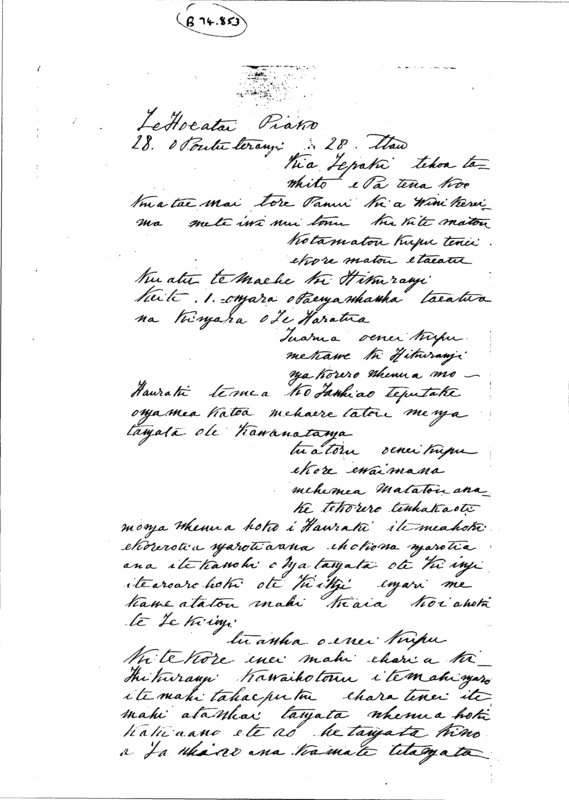 B 74.853
Te Hoeatai Piako
28. o Poututerangi 28.
Kia Tepaki tehoa ta-
whito e Pa tena koe
Kuatae mai tore Panui kia Wini Kerei-
ma mete iwi nui tonu kia kite matou
Kotamatou kupu tenei.
ekore matou etaeatu
Kuatu te Maehe ki Hikuranyi
Keite .1. onyara oPaenyawhawha taeatua
na kinyara oTe Haratua
Tuarua oenei kupu
mekawe ki Hikuranyi
nyakorero whenua mo-
Hauraki temea ko Tawhiao teputake
onyamea katoa mehaere tatou menya
tanyata ote Kawanatanya
tuatoru oenei kupu
ekore ewaimana
mehemea Matatou ana-
ke tekorero tewhakaoti
monya whenua hoko i Hauraki itemeahoki
ekorerotia nyarotiaana ehokona nyarotia
ana itekanohi onyatanyata ote Kiinyi
itearoaro hoki ote Kiinyi enyari me
kawe atatou mahi kiaia koiahoki
te Te Kiinyi
tuawha oenei kupu
Kitekore enei mahi ekaria ki-
Hikuranyi kawaihotonu itemahinyaro
itemahi tahaeputu ehara tenei ite
mahi atawhai tanyata whenua hoki
kakiiano ete ao he tanyata kino
a Tawhiao ana kamate tetanyata